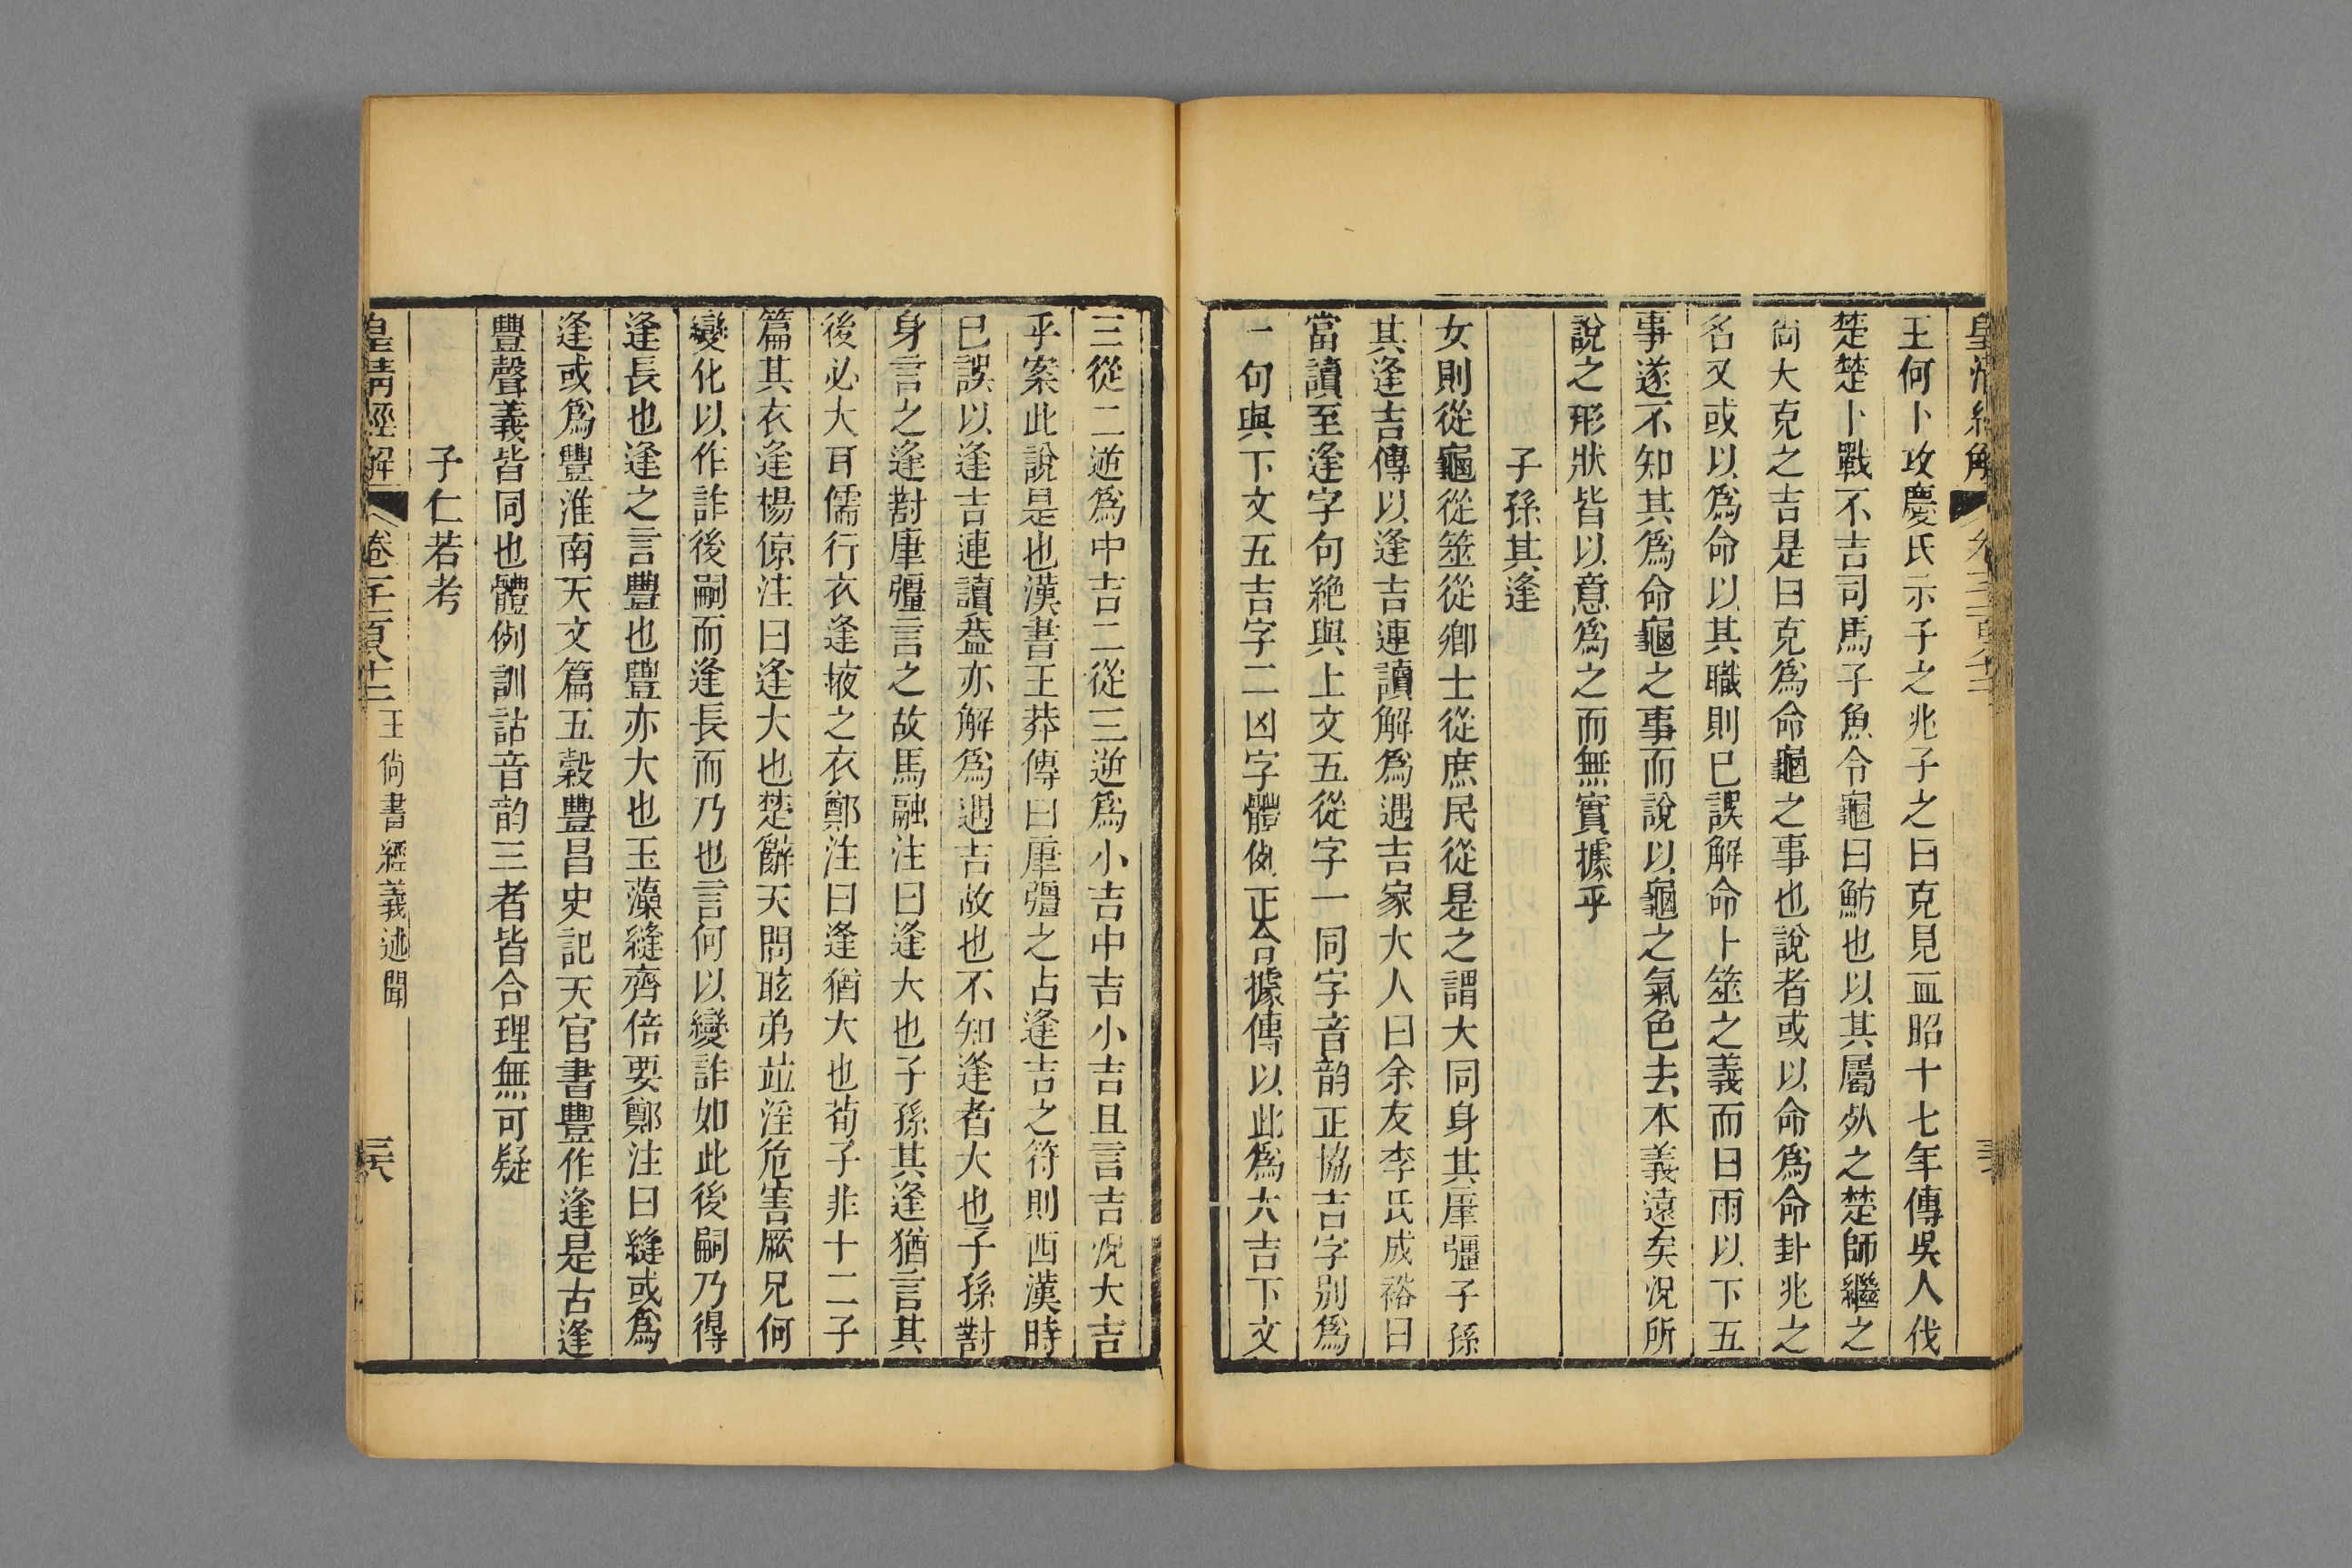 皇清經解
王何卜攻慶氏示子之兆子之曰克見血昭十七年傳吳人伐
楚楚卜戰不吉司馬子魚令龜曰魴也以其屬死之楚師繼之
尙大克之吉是曰克爲命龜之事也說者或以命爲命卦兆之
名又或以爲命以其職則已誤解命卜筮之義而曰雨以下五
事遂不知其爲命龜之事而說以龜之氣色去本義遠矣況所
說之形狀皆以意爲之而無實據乎
子孫其逢
女則從龜從筮從卿士從庶民從是之謂大同身其康彊子孫
其逢吉傳以逢吉連讀解爲遇吉家大人曰余友李氏成裕曰
當讀至逢字句絶與上文五從字一同字音韵正協吉字別爲
一句與下文五吉字二凶字體例正合據傳以此爲大吉下文
三從二逆爲中吉二從三逆爲小吉中吉小吉且言吉況大吉
乎案此說是也漢書王莽傳曰康彊之占逢吉之符則西漢時
已誤以逢吉連讀葢亦解爲遇吉故也不知逢者大也子孫對
身言之逢對康彊言之故馬融注曰逢大也子孫其逢猶言其
後必大耳儒行衣逢掖之衣鄭注曰逢猶大也荀子非十二子
篇其衣逢楊倞注曰逢大也楚辭天問眩弟竝淫危害厥兄何
變化以作詐後嗣而逢長而乃也言何以變詐如此後嗣乃得
逢長也逢之言豐也豐亦大也玉藻縫齊倍要鄭注曰縫或爲
逢或爲豐淮南天文篇五穀豐昌史記天官書豐作逢是古逢
豐聲義皆同也體例訓詁音韵三者皆合理無可疑
子仁若考
皇清經解 卷千一百八十二 王尙書經義述聞